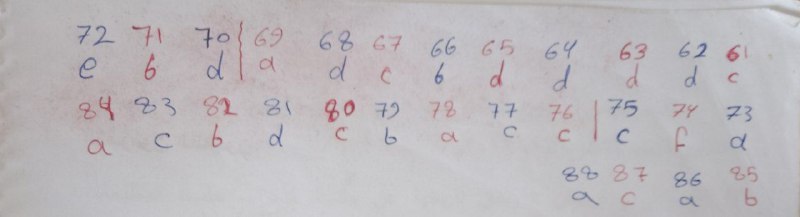 72 71 70 69 68 67 66 65 64 63 62 61
e b d a d c b d d d d c
84 83 82 81 80 79 78 77 76 75 74 73
a c b d c b a c c c f d
88 87 86 85
a c a b